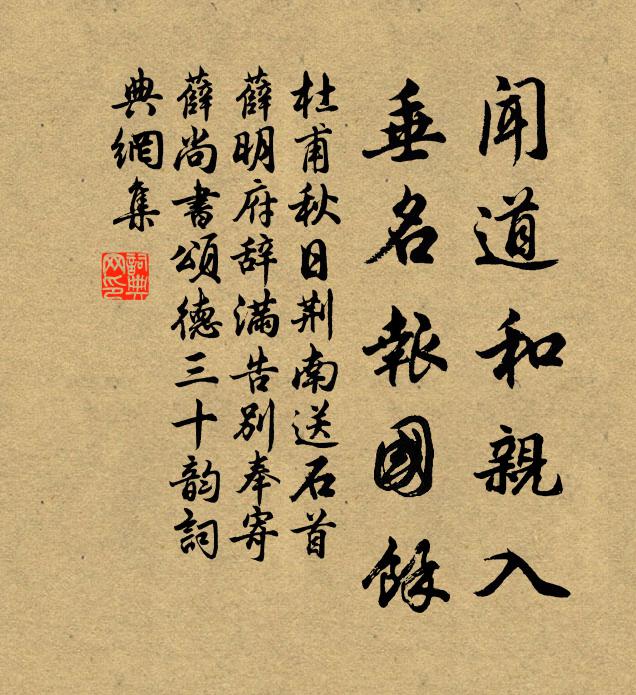 聞道和親入
垂名報國餘
杜甫秋日荆南送石首
薛明府辞满告别奉寄
薛尚書頌德三十韵詞
典網集
詞典
网印